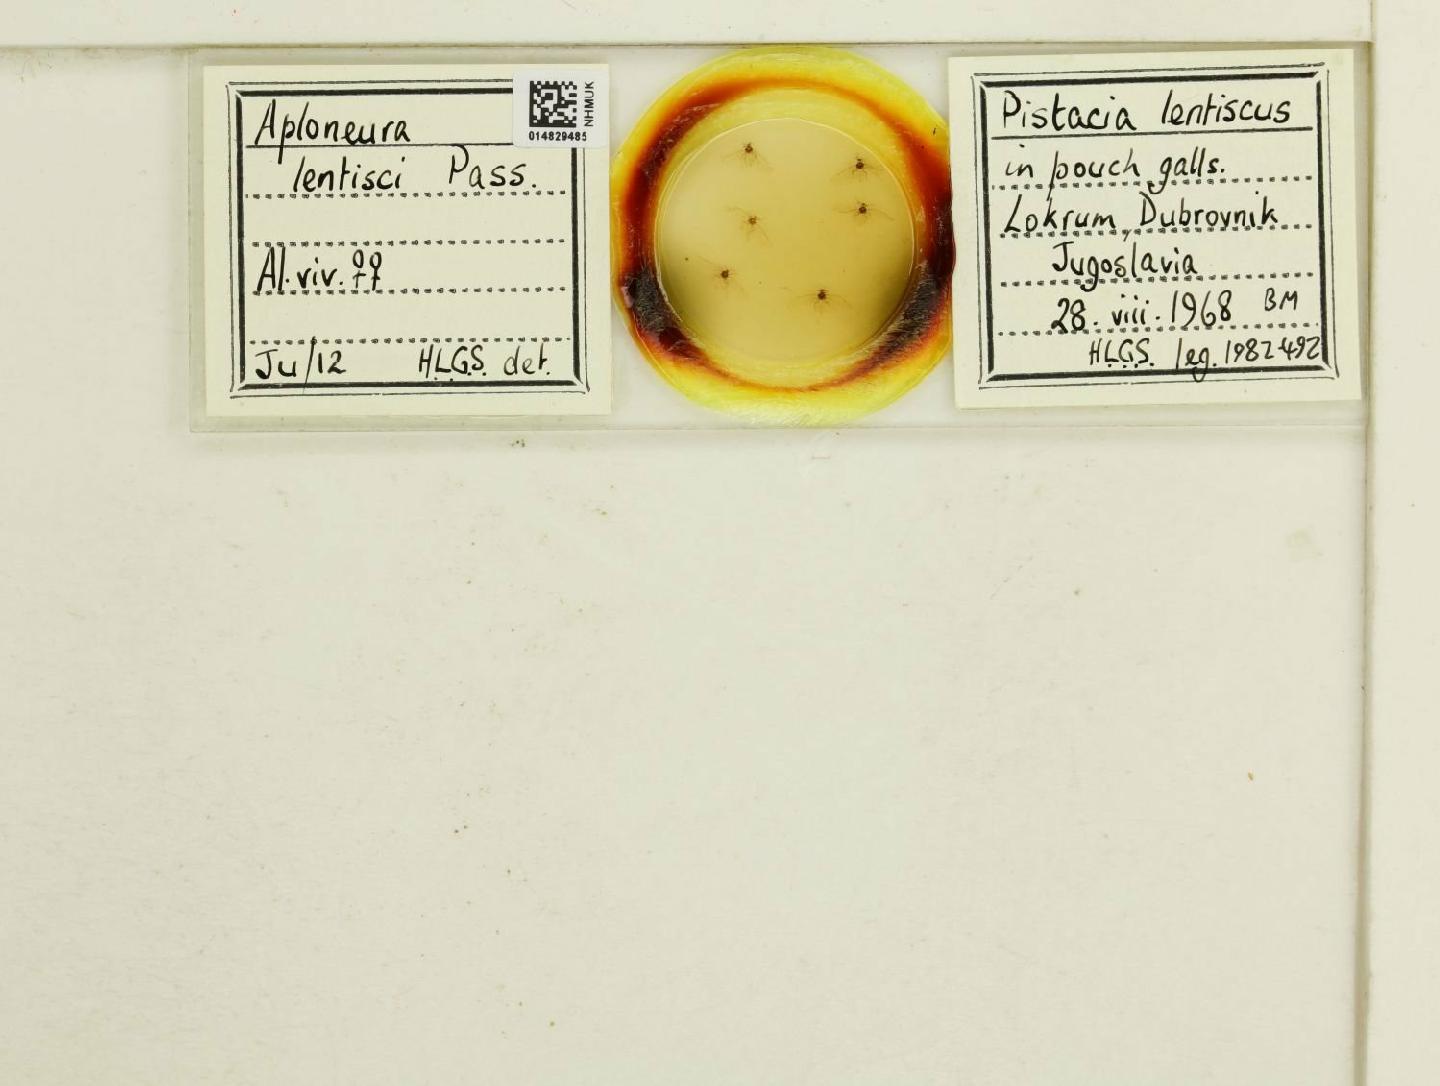 Aploneura
lentisci Pass.
Al. viv. ♀♀
Ju/12 HLGS. det.
014829485
NHMUK
Pistacia lentiscus
in pouch galls.
Lokrum, Dubrovnik
Jugoslavia
28. viii. 1968 BM
HLGS. leg. 1982-492